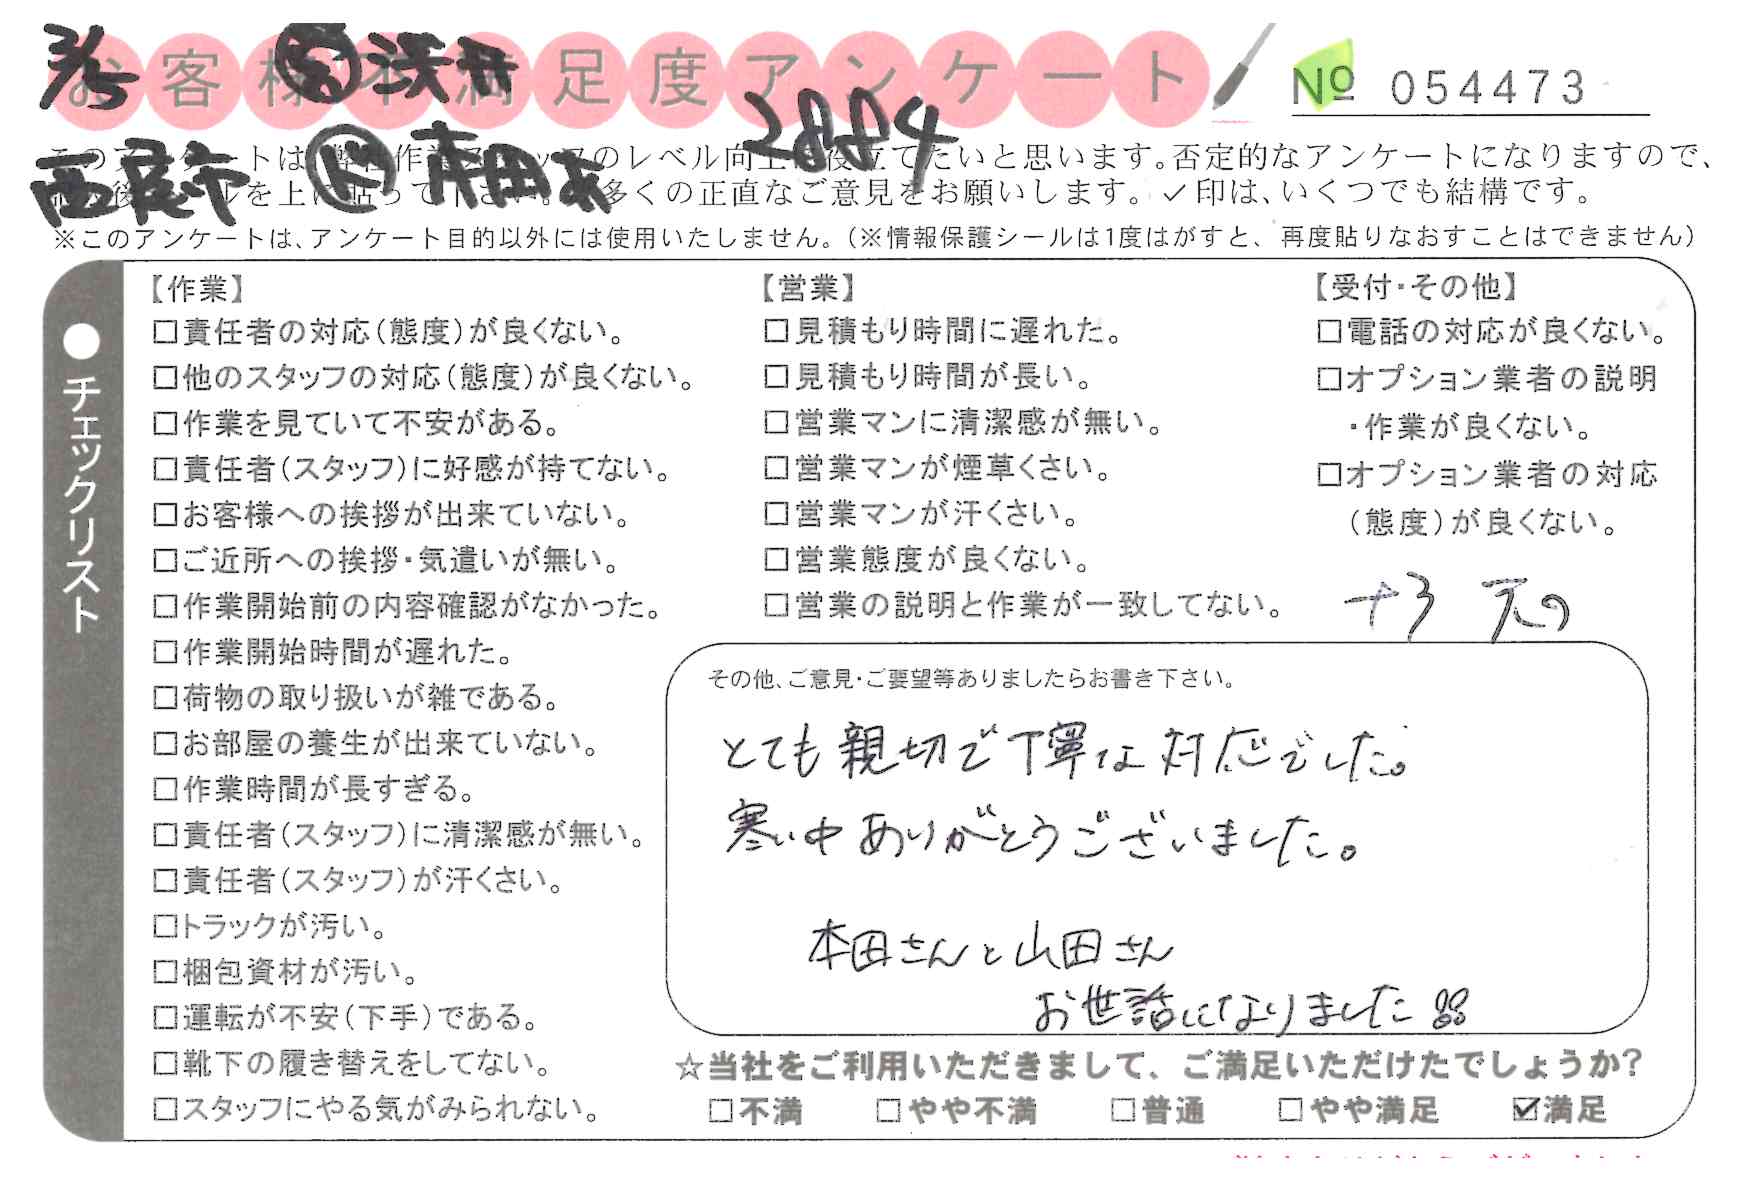 お客様不満足度アンケート
No 054473
3/5 営 沢井
2884
ド 本田
このアンケートは、弊社作業スタッフのレベル向上に役立てたいと思います。否定的なアンケートになりますので、
ルを上に貼って下さい。多くの正直なご意見をお願いします。✓印は、いくつでも結構です。
※このアンケートは、アンケート目的以外には使用いたしません。(※情報保護シールは1度はがすと、再度貼りなおすことはできません)
●チェックリスト
【作業】
□責任者の対応(態度)が良くない。
□他のスタッフの対応(態度)が良くない。
□作業を見ていて不安がある。
□責任者(スタッフ)に好感が持てない。
□お客様への挨拶が出来ていない。
□ご近所への挨拶・気遣いが無い。
□作業開始前の内容確認がなかった。
□作業開始時間が遅れた。
□荷物の取り扱いが雑である。
□お部屋の養生が出来ていない。
□作業時間が長すぎる。
□責任者(スタッフ)に清潔感が無い。
□責任者(スタッフ)が汗くさい。
□トラックが汚い。
□梱包資材が汚い。
□運転が不安(下手)である。
□靴下の履き替えをしてない。
□スタッフにやる気がみられない。
【営業】
□見積もり時間に遅れた。
□見積もり時間が長い。
□営業マンに清潔感が無い。
□営業マンが煙草くさい。
□営業マンが汗くさい。
□営業態度が良くない。
□営業の説明と作業が一致してない。
【受付・その他】
□電話の対応が良くない。
□オプション業者の説明
・作業が良くない。
□オプション業者の対応
(態度)が良くない。
その他、ご意見・ご要望等ありましたらお書き下さい。
とても親切で丁寧な対応でした。
寒い中ありがとうございました。
本田さんと山田さん
お世話になりました
☆当社をご利用いただきまして、ご満足いただけたでしょうか?
□不満 □やや不満 □普通 □やや満足 ☑満足